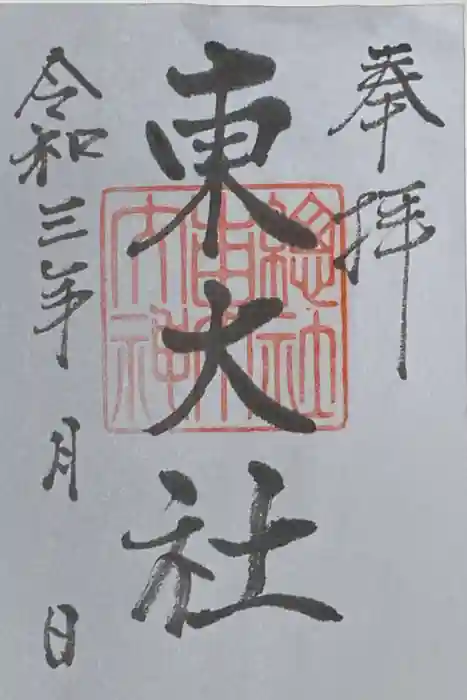 奉拝
東大社
令和三年 月 日
總社